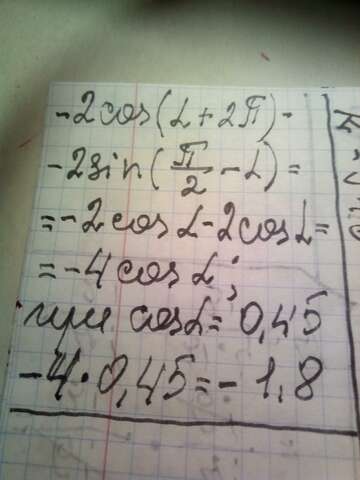 -2cos(α+2π)-
-2sin(π/2-α)=
=-2cosα-2cosα=
=-4cosα;
при cosα=0,45
-4·0,45=-1,8